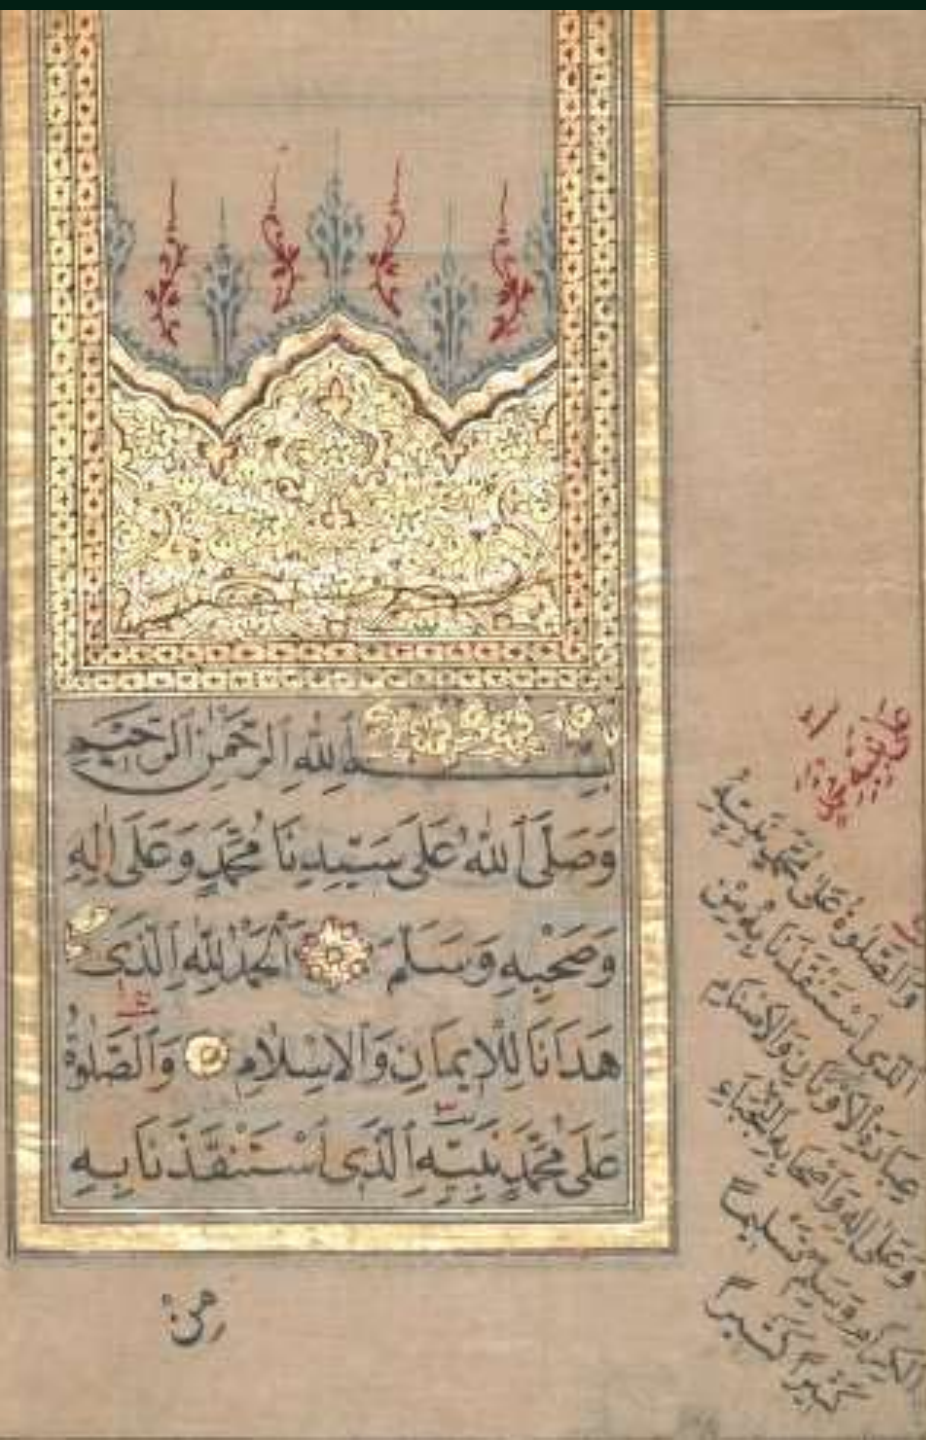 بِسْمِ اللهِ الرَّحْمٰنِ الرَّحِيْمِ
وَصَلَّى اللهُ عَلٰى سَيِّدِنَا مُحَمَّدٍ وَعَلٰى اٰلِهِ
وَصَحْبِهِ وَسَلَّمَ اَلْحَمْدُ لِلّٰهِ الَّذِى
هَدَانَا لِلْاِيمَانِ وَالْاِسْلَامِ وَالصَّلٰوةُ
عَلٰى مُحَمَّدٍ نَبِيِّهِ الَّذِى اسْتَنْقَذَنَا بِهِ
مِنْ
عَلٰى نَبِيِّهِ
وَالصَّلٰوةُ عَلٰى مُحَمَّدٍ نَبِيِّهِ
الَّذِى اسْتَنْقَذَنَا بِهِ مِنْ
عِبَادَةِ الْاَوْثَانِ وَالْاَصْنَامِ
وَعَلٰى اٰلِهِ وَاَصْحَابِهِ النُّجَبَاءِ
وَسَلَّمَ تَسْلِيمًا
كَثِيرًا كَثِيرًا